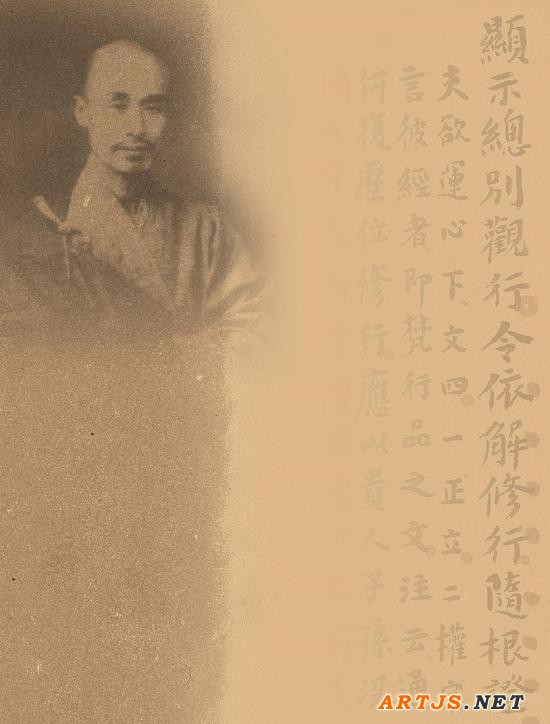 顯示總別觀行令依解修行隨根證
夫欲運心下文四一正立二權
言彼經者即梵行品之文注云通
何復歷位修行應以貴人子孫
ARTJS.NET